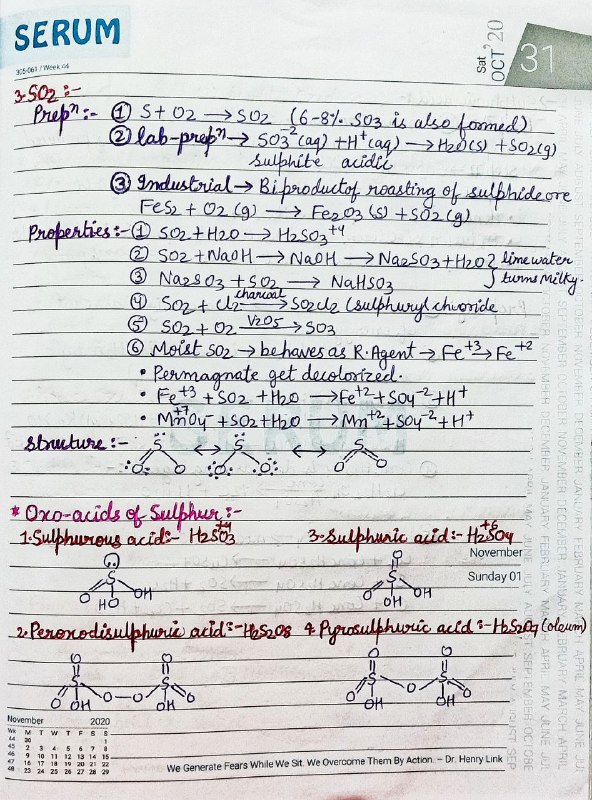 SERUM
305-061 / Week 44
Sat, OCT '20 31
3. SO2 :-
Prepⁿ :- ① S + O2 → SO2 (6-8% SO3 is also formed)
② lab-prepⁿ → SO3⁻²(aq) + H⁺(aq) → H2O(s) + SO2(g)
sulphite acidic
③ Industrial → Biproduct of roasting of sulphide ore
FeS2 + O2 (g) → Fe2O3 (s) + SO2 (g)
Properties :- ① SO2 + H2O → H2SO3⁺⁴
② SO2 + NaOH → NaOH → Na2SO3 + H2O } lime water
③ Na2SO3 + SO2 → NaHSO3 turns Milky.
④ SO2 + Cl2 charcoal→ SO2Cl2 (sulphuryl chloride
⑤ SO2 + O2 V2O5→ SO3
⑥ Moist SO2 → behaves as R.Agent → Fe⁺³ → Fe⁺²
• Permagnate get decolorized.
• Fe⁺³ + SO2 + H2O → Fe⁺² + SO4⁻² + H⁺
• Mn⁺⁷O4⁻ + SO2 + H2O → Mn⁺² + SO4⁻² + H⁺
Structure :- S O O ↔ S O O ↔ S O O
* Oxo-acids of Sulphur :-
1. Sulphurous acid :- H2SO3 +4 3. Sulphuric acid :- H2SO4 +6
November
Sunday 01
S O OH HO O S O OH OH
2. Peroxodisulphuric acid :- H2S2O8 4. Pyrosulphuric acid :- H2S2O7 (oleum)
O O O O
O S OH O—O S O OH O S OH O S O OH
November 2020
Wk M T W T F S S
44 30 1
45 2 3 4 5 6 7 8
46 9 10 11 12 13 14 15
47 16 17 18 19 20 21 22
48 23 24 25 26 27 28 29
We Generate Fears While We Sit. We Overcome Them By Action. – Dr. Henry Link